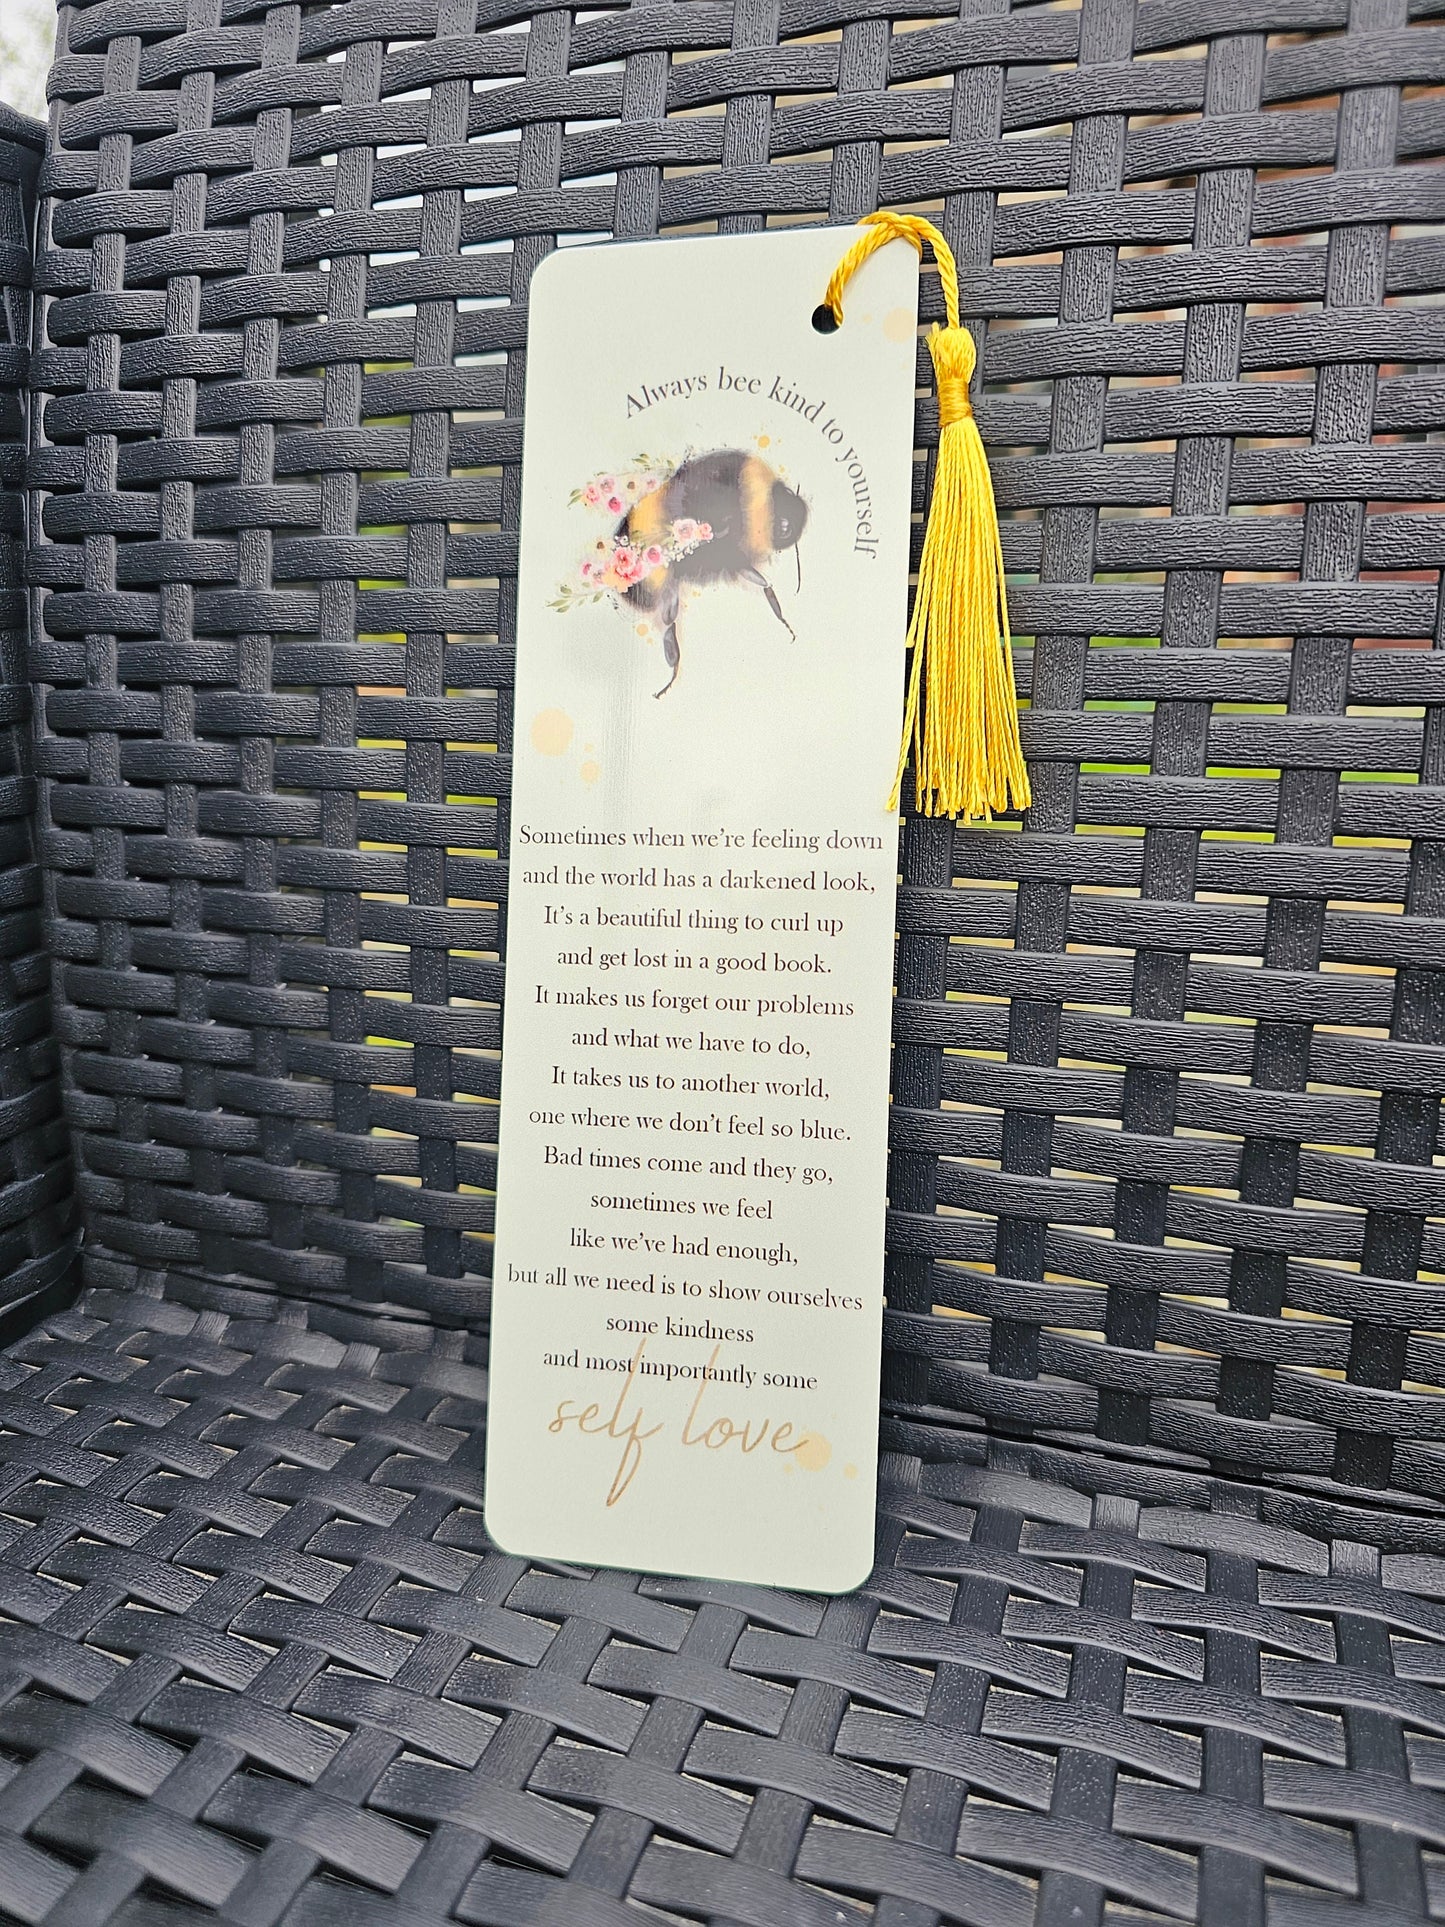 Always bee kind to yourself
Sometimes when we're feeling down
and the world has a darkened look,
It's a beautiful thing to curl up
and get lost in a good book.
It makes us forget our problems
and what we have to do,
It takes us to another world,
one where we don't feel so blue.
Bad times come and they go,
sometimes we feel
like we've had enough,
but all we need is to show ourselves
some kindness
and most importantly some
self love